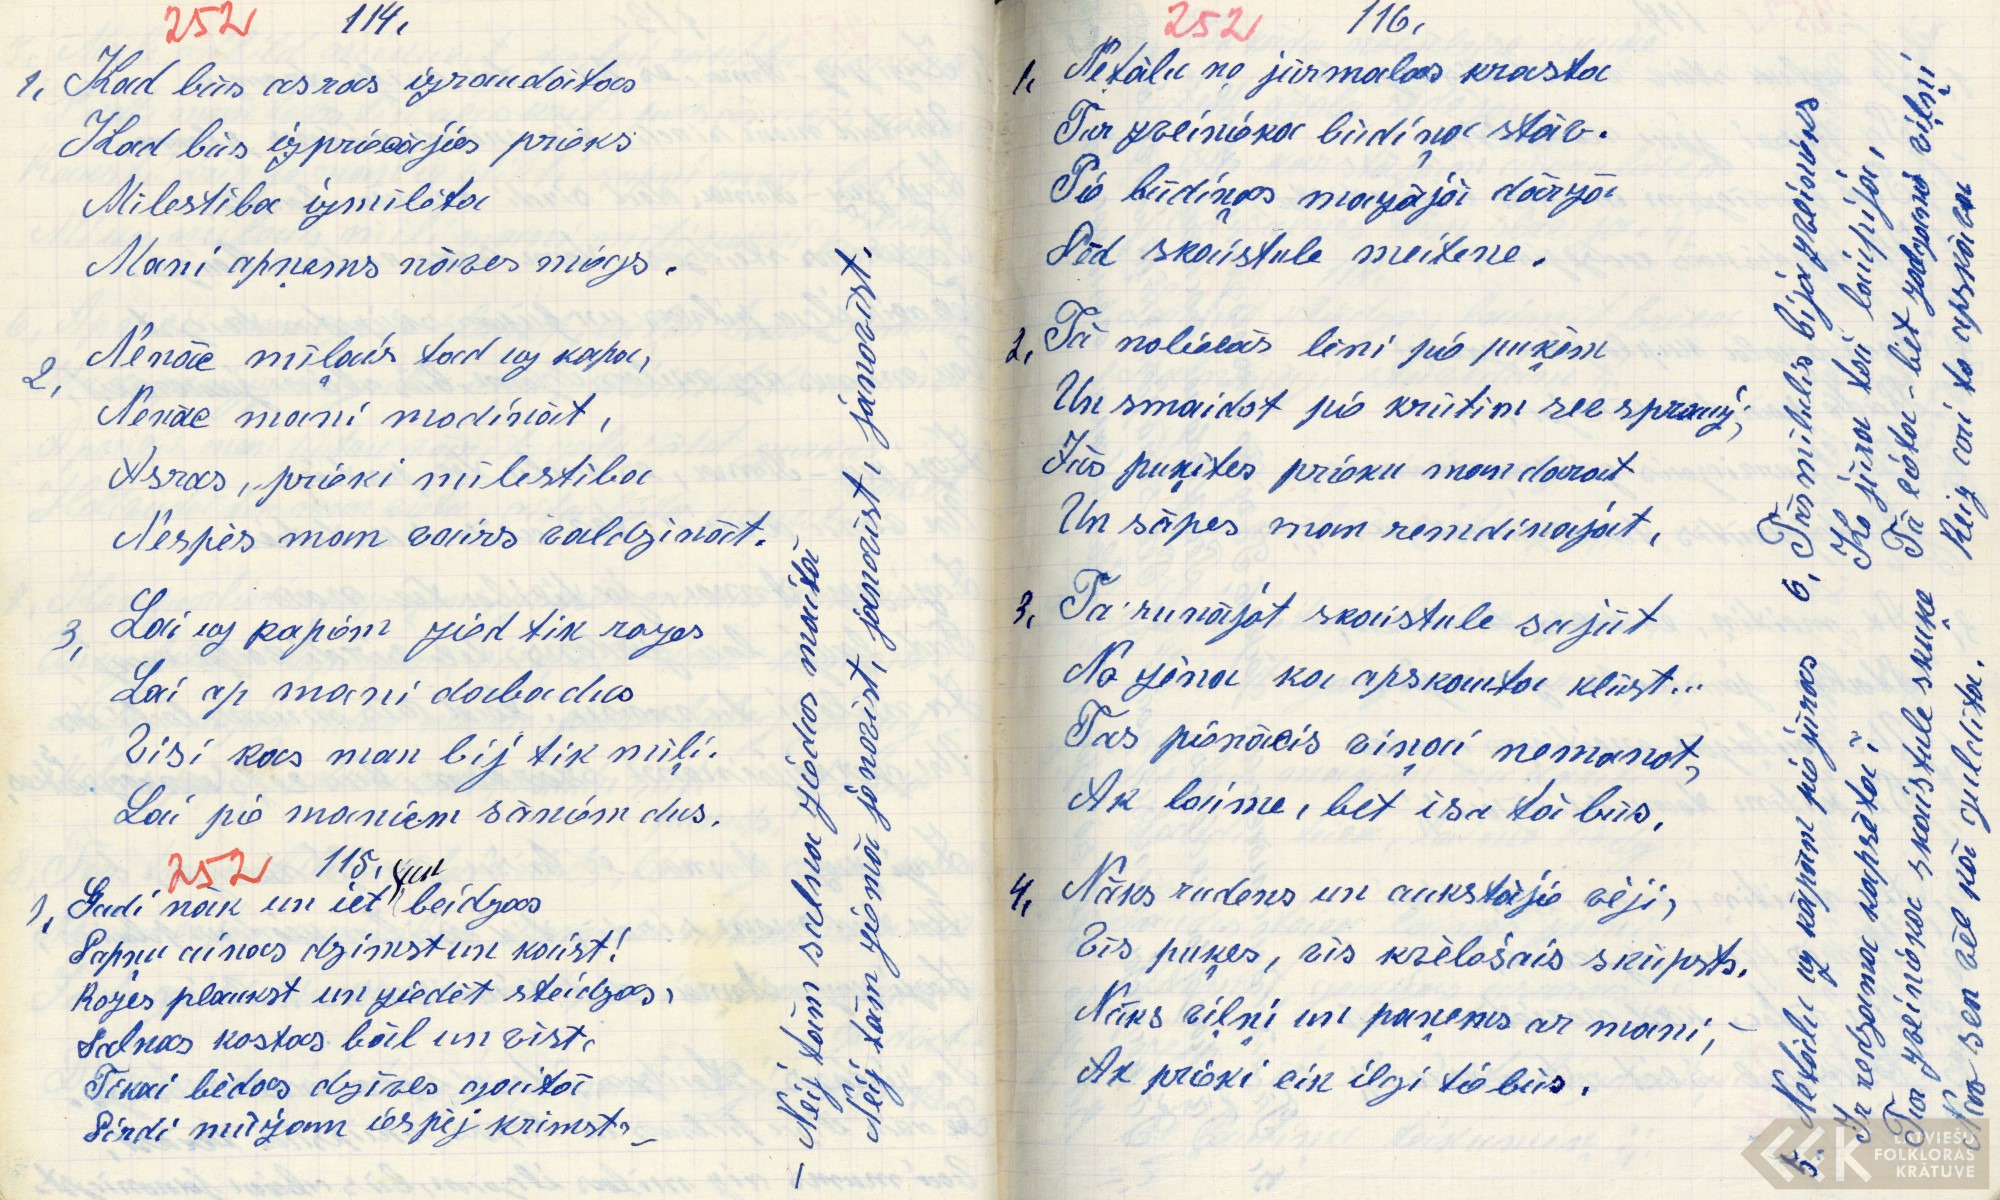 252 114,
1, Kad būs asras izraudātas
Kad būs izpriecājies prieks
Milestiba izmilēta
Mani apņems nāves miegs.
2, Nenāc mīļais tad uz kapa,
Nenāc mani modināt,
Asras, prieki milestiba
Nespēs man vairs valdzināt.
3, Lai uz kapiem zied tik rozes
Lai ap mani daba dus
Visi kas man bij tik miļi.
Lai pie maniem sāniem dus.
252 115,
1, Gadi nāk un iet un beidzas
Sapņu ainas dzimst un kaist!
Rozes plaukst un ziedēt steidzas,
Salnas kostas bāl un vist.
Tikai bēdas dzives gaitā
Sirdi mūžam iespēj krimst,
– Neij tām salna ziedus maitā
Neij tām ziemā jānovist, jānovist, jānovist.
252 116,
1, Netālu no jūrmalas krasta
Tur zveinieka būdiņa stāv.
Pie būdiņas mazājā dārzā
Sēd skaistule meitene.
2, Tā noliecās lēni pie puķēm
Un smaidot pie krūtim sev sprauž;
Jūs puķites prieku man darat
Un sāpes man remdinajat,
3, Tā runājot skaistule sajūt
No zēna ka apskauta kļūst...
Tas pienācis viņai nemanot,
Ak laime, bet īsa tā būs,
4, Nāks rudens un aukstājie vēji,
Vis puķes, vis kvēlošais skūpsts.
Nāks viļņi un paņems ar mani, –
Ak prieki cik ilgi tie būs.
5, Netālu uz kāpām pie jūras
Ir redzama kapsēta?
Tur zveinieka skaistule skuķe
Nav sen vēl kā guldita.
6, Tās miļulis bija zveinieks
Ko jūra tai laupija,
Tā cieta – bet zodzoņi viļņi
Reiz ari to apskāva
LATVIEŠU
FOLKLORAS
KRĀTUVE